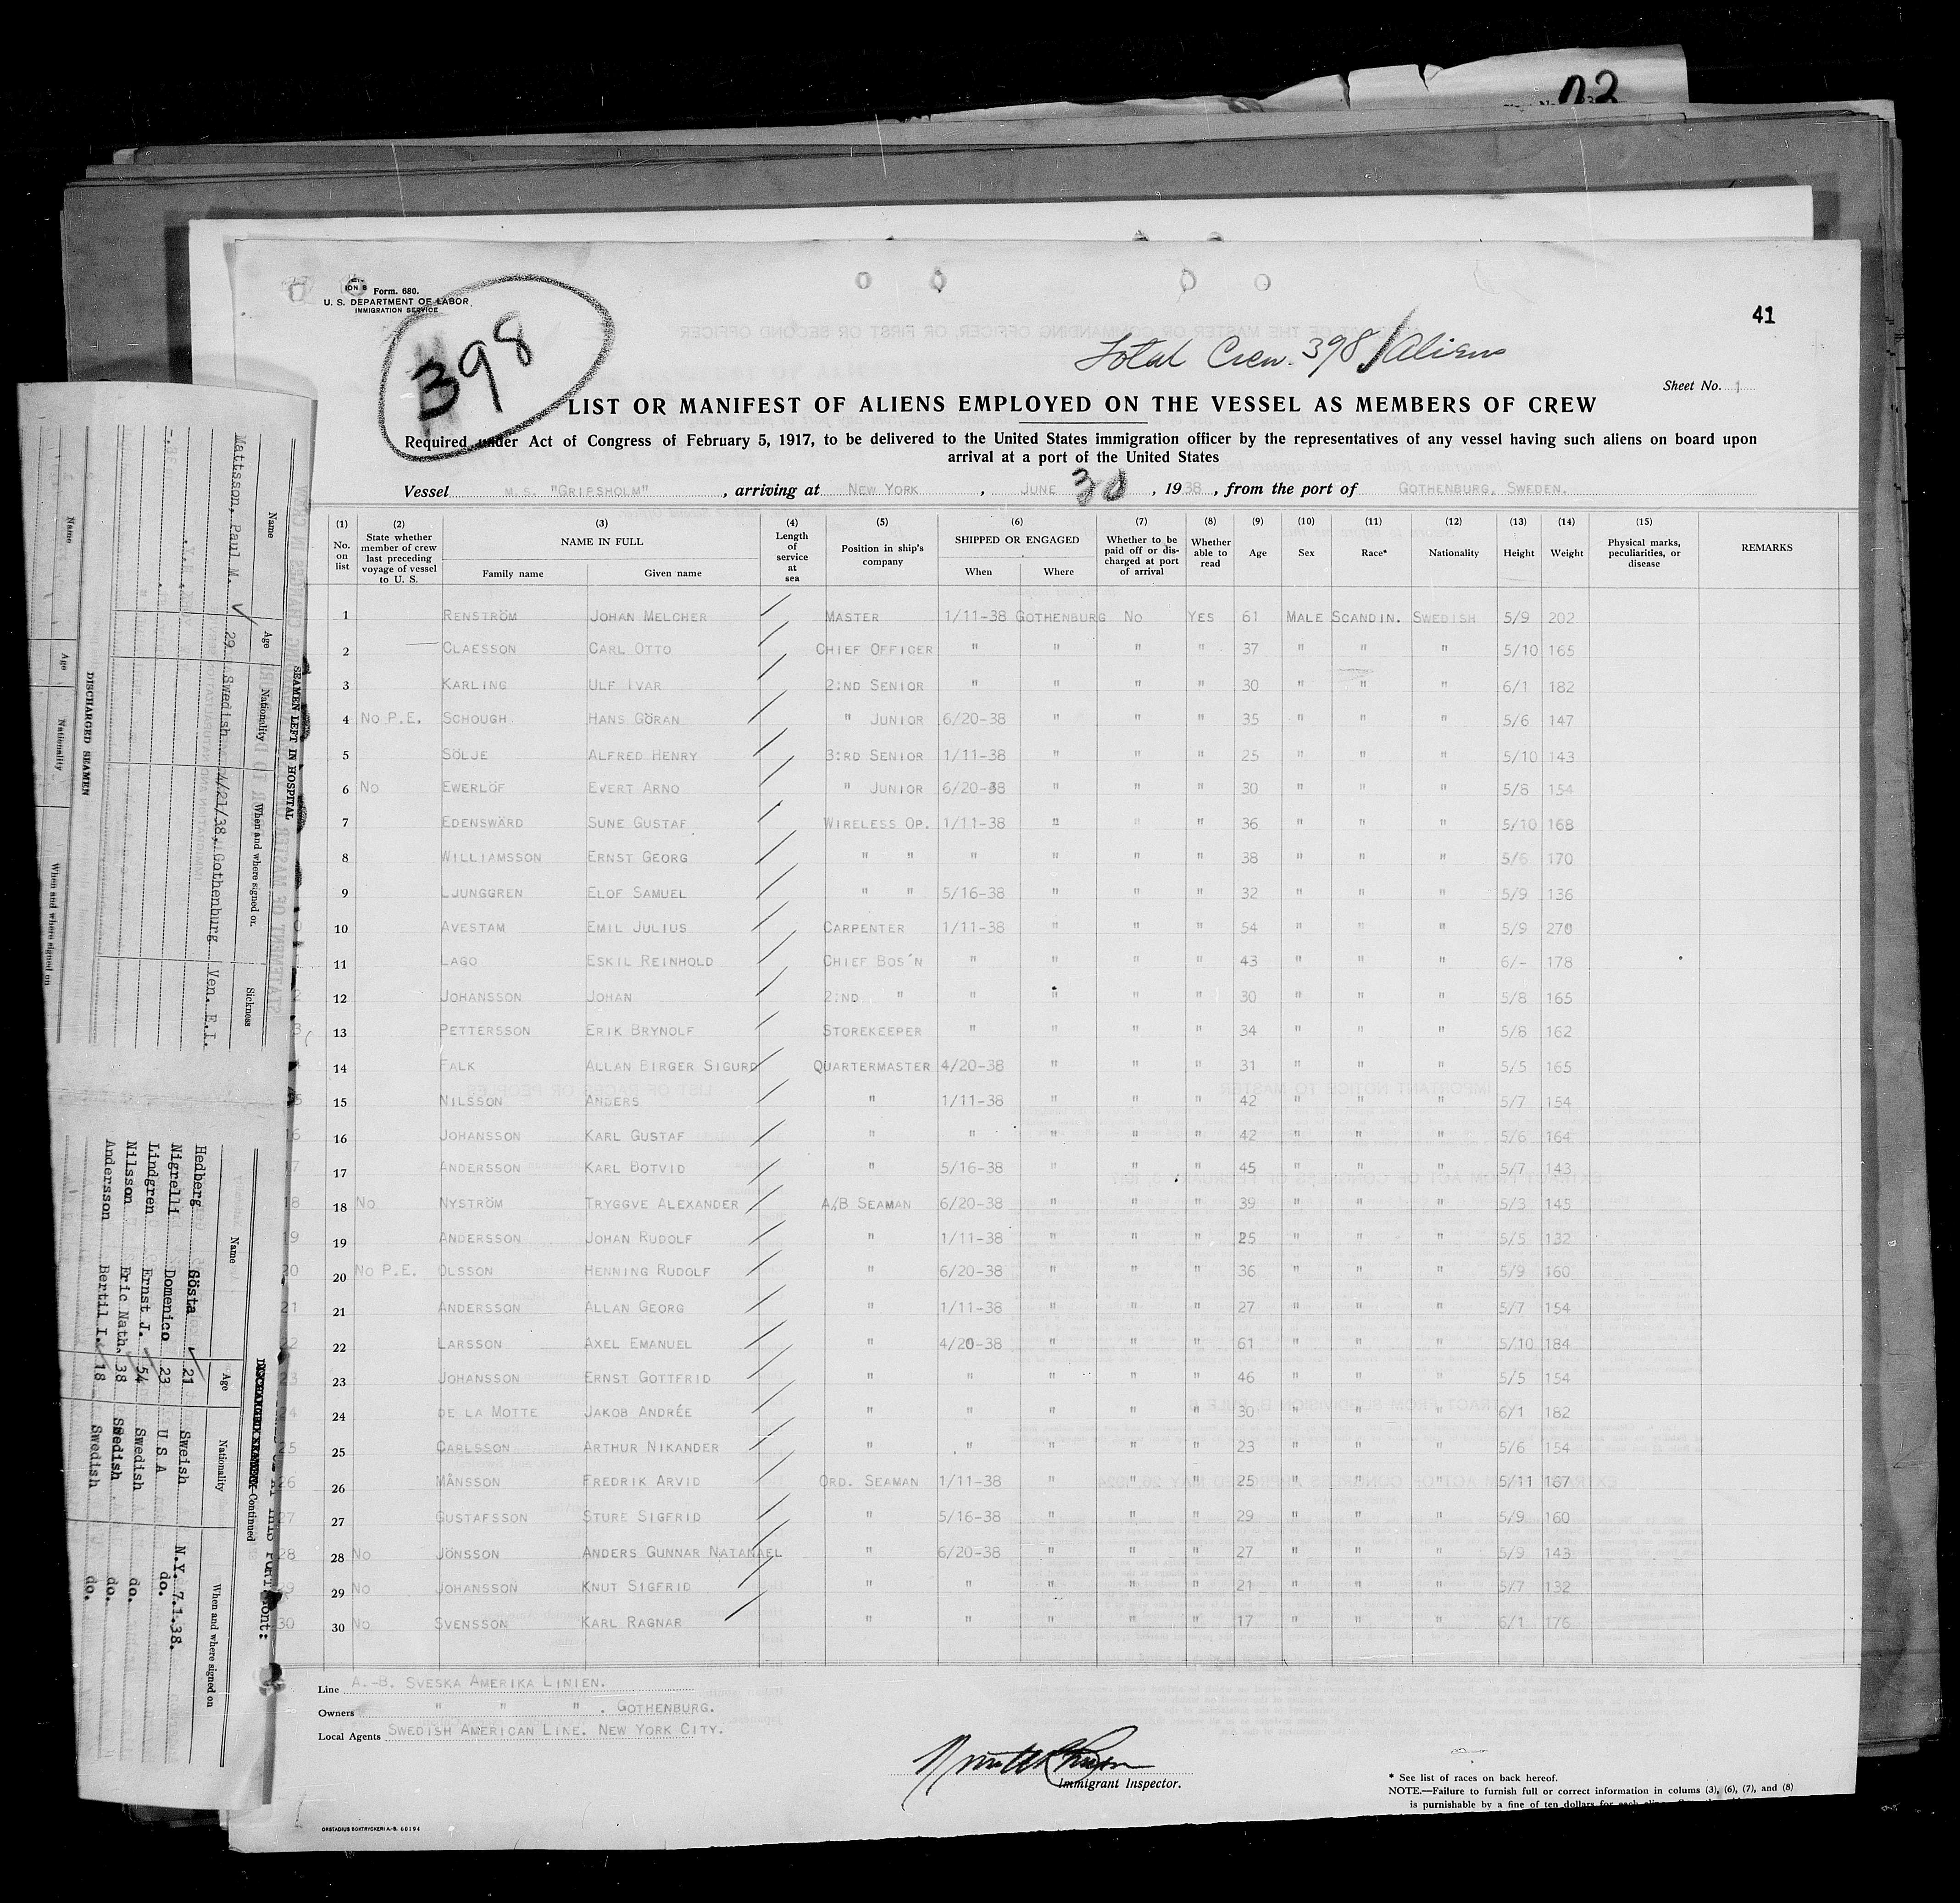 Form. 680.
U. S. DEPARTMENT OF LABOR
IMMIGRATION SERVICE
398
41
Total Crew. 398 / Aliens
Sheet No. 1
LIST OR MANIFEST OF ALIENS EMPLOYED ON THE VESSEL AS MEMBERS OF CREW
Required under Act of Congress of February 5, 1917, to be delivered to the United States immigration officer by the representatives of any vessel having such aliens on board upon
arrival at a port of the United States
Vessel M.S. "GRIPSHOLM" , arriving at NEW YORK , JUNE 30 , 1938 , from the port of GOTHENBURG, SWEDEN.
(1) No. on list (2) State whether member of crew last preceding voyage of vessel to U. S. (3) NAME IN FULL Family name Given name (4) Length of service at sea (5) Position in ship's company (6) SHIPPED OR ENGAGED When Where (7) Whether to be paid off or discharged at port of arrival (8) Whether able to read (9) Age (10) Sex (11) Race* (12) Nationality (13) Height (14) Weight (15) Physical marks, peculiarities, or disease REMARKS
1 RENSTRÖM JOHAN MELCHER MASTER 1/11-38 GOTHENBURG NO YES 61 MALE SCANDIN. SWEDISH 5/9 202
2 CLAESSON CARL OTTO CHIEF OFFICER " " " " 37 " " " 5/10 165
3 KARLING ULF IVAR 2:ND SENIOR " " " " 30 " " " 6/1 182
4 NO P.E. SCHOUGH HANS GÖRAN " JUNIOR 6/20-38 " " " 35 " " " 5/6 147
5 SÖLJE ALFRED HENRY 3:RD SENIOR 1/11-38 " " " 25 " " " 5/10 143
6 NO EWERLÖF EVERT ARNO " JUNIOR 6/20-38 " " " 30 " " " 5/8 154
7 EDENSWÄRD SUNE GUSTAF WIRELESS OP. 1/11-38 " " " 36 " " " 5/10 168
8 WILLIAMSSON ERNST GEORG " " " " " " 38 " " " 5/6 170
9 LJUNGGREN ELOF SAMUEL " " 5/16-38 " " " 32 " " " 5/9 136
10 AVESTAM EMIL JULIUS CARPENTER 1/11-38 " " " 54 " " " 5/9 270
11 LAGO ESKIL REINHOLD CHIEF BOS'N " " " " 43 " " " 6/- 178
12 JOHANSSON JOHAN 2:ND " " " " " 30 " " " 5/8 165
13 PETTERSSON ERIK BRYNOLF STOREKEEPER " " " " 34 " " " 5/8 162
14 FALK ALLAN BIRGER SIGURD QUARTERMASTER 4/20-38 " " " 31 " " " 5/5 165
15 NILSSON ANDERS " 1/11-38 " " " 42 " " " 5/7 154
16 JOHANSSON KARL GUSTAF " " " " " 42 " " " 5/6 164
17 ANDERSSON KARL BOTVID " 5/16-38 " " " 45 " " " 5/7 143
18 NO NYSTRÖM TRYGGVE ALEXANDER A/B SEAMAN 6/20-38 " " " 39 " " " 5/3 145
19 ANDERSSON JOHAN RUDOLF " 1/11-38 " " " 25 " " " 5/5 132
20 NO P.E. OLSSON HENNING RUDOLF " 6/20-38 " " " 36 " " " 5/9 160
21 ANDERSSON ALLAN GEORG " 1/11-38 " " " 27 " " " 5/7 154
22 LARSSON AXEL EMANUEL " 4/20-38 " " " 61 " " " 5/10 184
23 JOHANSSON ERNST GOTTFRID " " " " " 46 " " " 5/5 154
24 DE LA MOTTE JAKOB ANDRÉE " " " " " 30 " " " 6/1 182
25 CARLSSON ARTHUR NIKANDER " " " " " 23 " " " 5/6 154
26 MÅNSSON FREDRIK ARVID ORD. SEAMAN 1/11-38 " " " 25 " " " 5/11 167
27 GUSTAFSSON STURE SIGFRID " 5/16-38 " " " 29 " " " 5/9 160
28 NO JÖNSSON ANDERS GUNNAR NATANAEL " 6/20-38 " " " 27 " " " 5/9 143
29 NO JOHANSSON KNUT SIGFRID " " " " " 21 " " " 5/7 132
30 NO SVENSSON KARL RAGNAR " " " " " 17 " " " 6/1 176
Line A.-B. SVESKA AMERIKA LINIEN.
Owners " " " . GOTHENBURG.
Local Agents SWEDISH AMERICAN LINE. NEW YORK CITY.
Immigrant Inspector.
* See list of races on back hereof.
NOTE.—Failure to furnish full or correct information in colums (3), (6), (7), and (8)
is punishable by a fine of ten dollars for each alien.
ORSTADIUS BOKTRYCKERI A.-B. 60194
SEAMEN LEFT IN HOSPITAL
Name Age Nationality When and where signed on. Sickness
Mattsson, Paul M. 29 Swedish 4/21/38, Gothenburg Ven. E.I.
DISCHARGED SEAMEN
Name Age Nationality When and where signed on
DISCHARGED SEAMEN—Continued
Name Age Nationality When and where signed on
Hedberg Gösta 21 Sweish N.Y. 7.1.38.
Nigrelli Domenico 23 U.S.A do.
Lindgren Ernst J. 54 Swedish do.
Nilsson Eric Nath. 38 Swedish do.
Andersson Bertil I. 18 Swedish do.